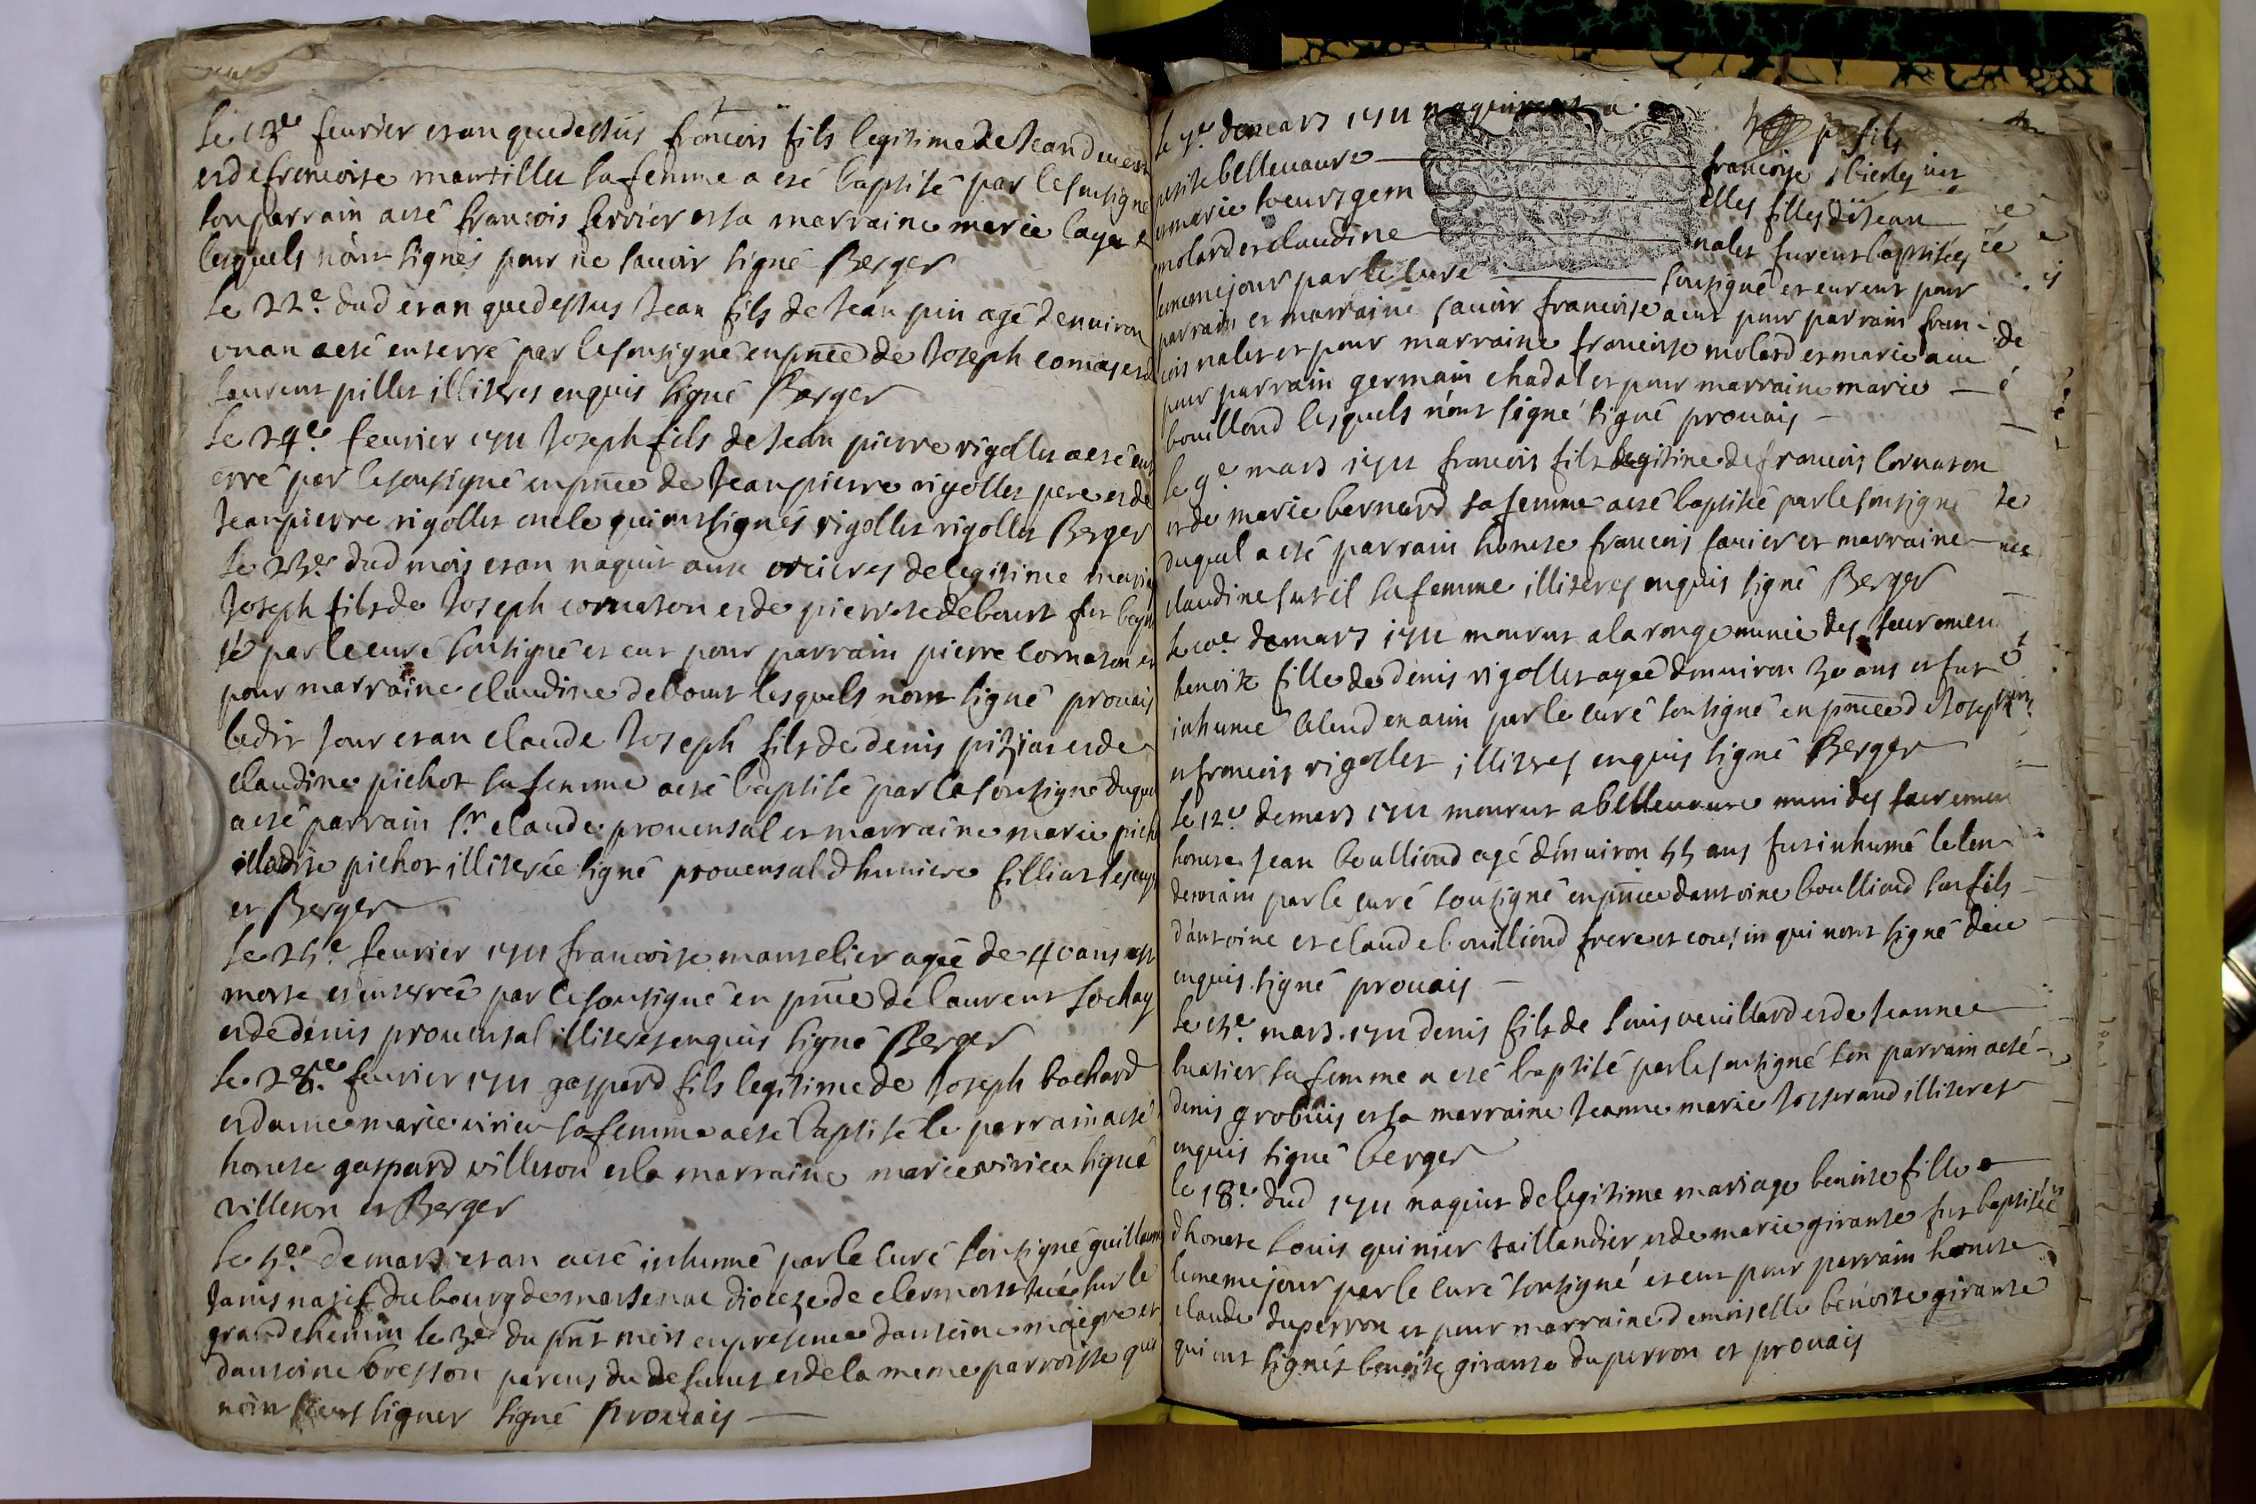 le 13e feurier et an que dessus francois fils legitime de Jean
et de francoise mantillet sa femme a eté baptisé par le sousigné
son parrain a eté francois ferrier et sa marraine marie
lesquels n'ont signés pour ne sauoir signé Berger
le 22e dud et an que dessus Jean fils de Jean pin agé d'enuiron
un an a eté enterré par le sousigné en pnce de Joseph comas et de
laurent pillet illiteres enquis signé Berger
le 24e feurier 1711 Joseph fils de Jean pierre rigollet a eté ent
erré par le sousigné en pnce de Jean pierre rigollet pere et de
Jean pierre rigollet oncle qui ont signés rigollet rigollet Berger
le 23e dud mois et an naquit aux orcieres de legitime mariag
Joseph fils de Joseph cornaton et de pierrete debourt fut bapti
sé par le curé sousigné et eut pour parrain pierre cornaton et
pour marraine claudine debourt lesquels n'ont signé prouais
ledit Jour et an claude Joseph fils de denis pitiat et de
claudine pichot sa femme a eté baptisé par le sousigné duquel
a eté parrain sr claude prouensal et marraine marie picho
pichot illiterée signé prouensal d humiere filliat
et Berger
le 25e feurier 1711 francoise mantelier agée de 40 ans est
morte et enterrée par le sousigné en pnce de laurent sochay
et de denis prouensal illiteres enquis signé Berger
le 28e feurier 1711 gaspard fils legitime de Joseph bochard
et d'anne marie virieu sa femme a eté baptisé le parrain a eté
honete gaspard villeton et la marraine marie virieu signé
villeton et Berger
le 5e de mars et an a eté inhumé par le curé sousigné guillaume
Janis natif du bourg de marsenac dioceze de clermont tué sur le
grand chemin le 3e du pnt mois en presence d'antoine maigre et
d'antoine bresson parens du defunct et de la meme parroisse qui
n'ont sceus signer signé prouais
le 7e de mars 1711 naquirent a
petite belleuaure francoise
et marie soeurs gem elles filles de Jean
molard et claudine nalet furent baptisées
le meme jour par le curé sousigné et eurent pour
parrain et marraine sauoir francoise a eut pour parrain fran
cois nalet et pour marraine francoise molard et marie a eu
pour parrain germain chadal et pour marraine marie
bouillond lesquels n'ont signé signé prouais
le 9e mars 1711 francois fils legitime de francois cornaton
et de marie bernard sa femme a eté baptisé par le sousigné
duquel a eté parrain honete francois fauier et marraine
claudine sa femme illiteres enquis signé Berger
le 10e de mars 1711 mourut a la ronge munie des sacremen
benoite fille de denis rigollet agée d'enuiron 30 ans et fut
inhumé le lendemain par le curé sousigné en pnce de Joseph
et francois rigollet illiteres enquis signé Berger
le 12e de mars 1711 mourut a belleuaure muni des sacremen
honete Jean boulliond agé d'enuiron 55 ans fut inhumé le len
demain par le curé sousigné en pnce d'antoine boulliond son fils
d'antoine et claude bouilliond frere et cousin qui n'ont signé de ce
enquis signé prouais
le 15e mars 1711 denis fils de louis veuillard et de Jeanne
buatier sa femme a eté baptisé par le sousigné son parrain a eté
denis grobuis et sa marraine Jeanne marie Josserand illiteres
enquis signé berger
le 18e dud 1711 naquit de legitime mariage benoite fille
d'honete louis quinier taillandier et de marie girante fut baptisée
le meme jour par le curé sousigné et eut pour parrain honete
claude duperron et pour marraine demoiselle benoite girante
qui ont signés benoite girante duperron et prouais